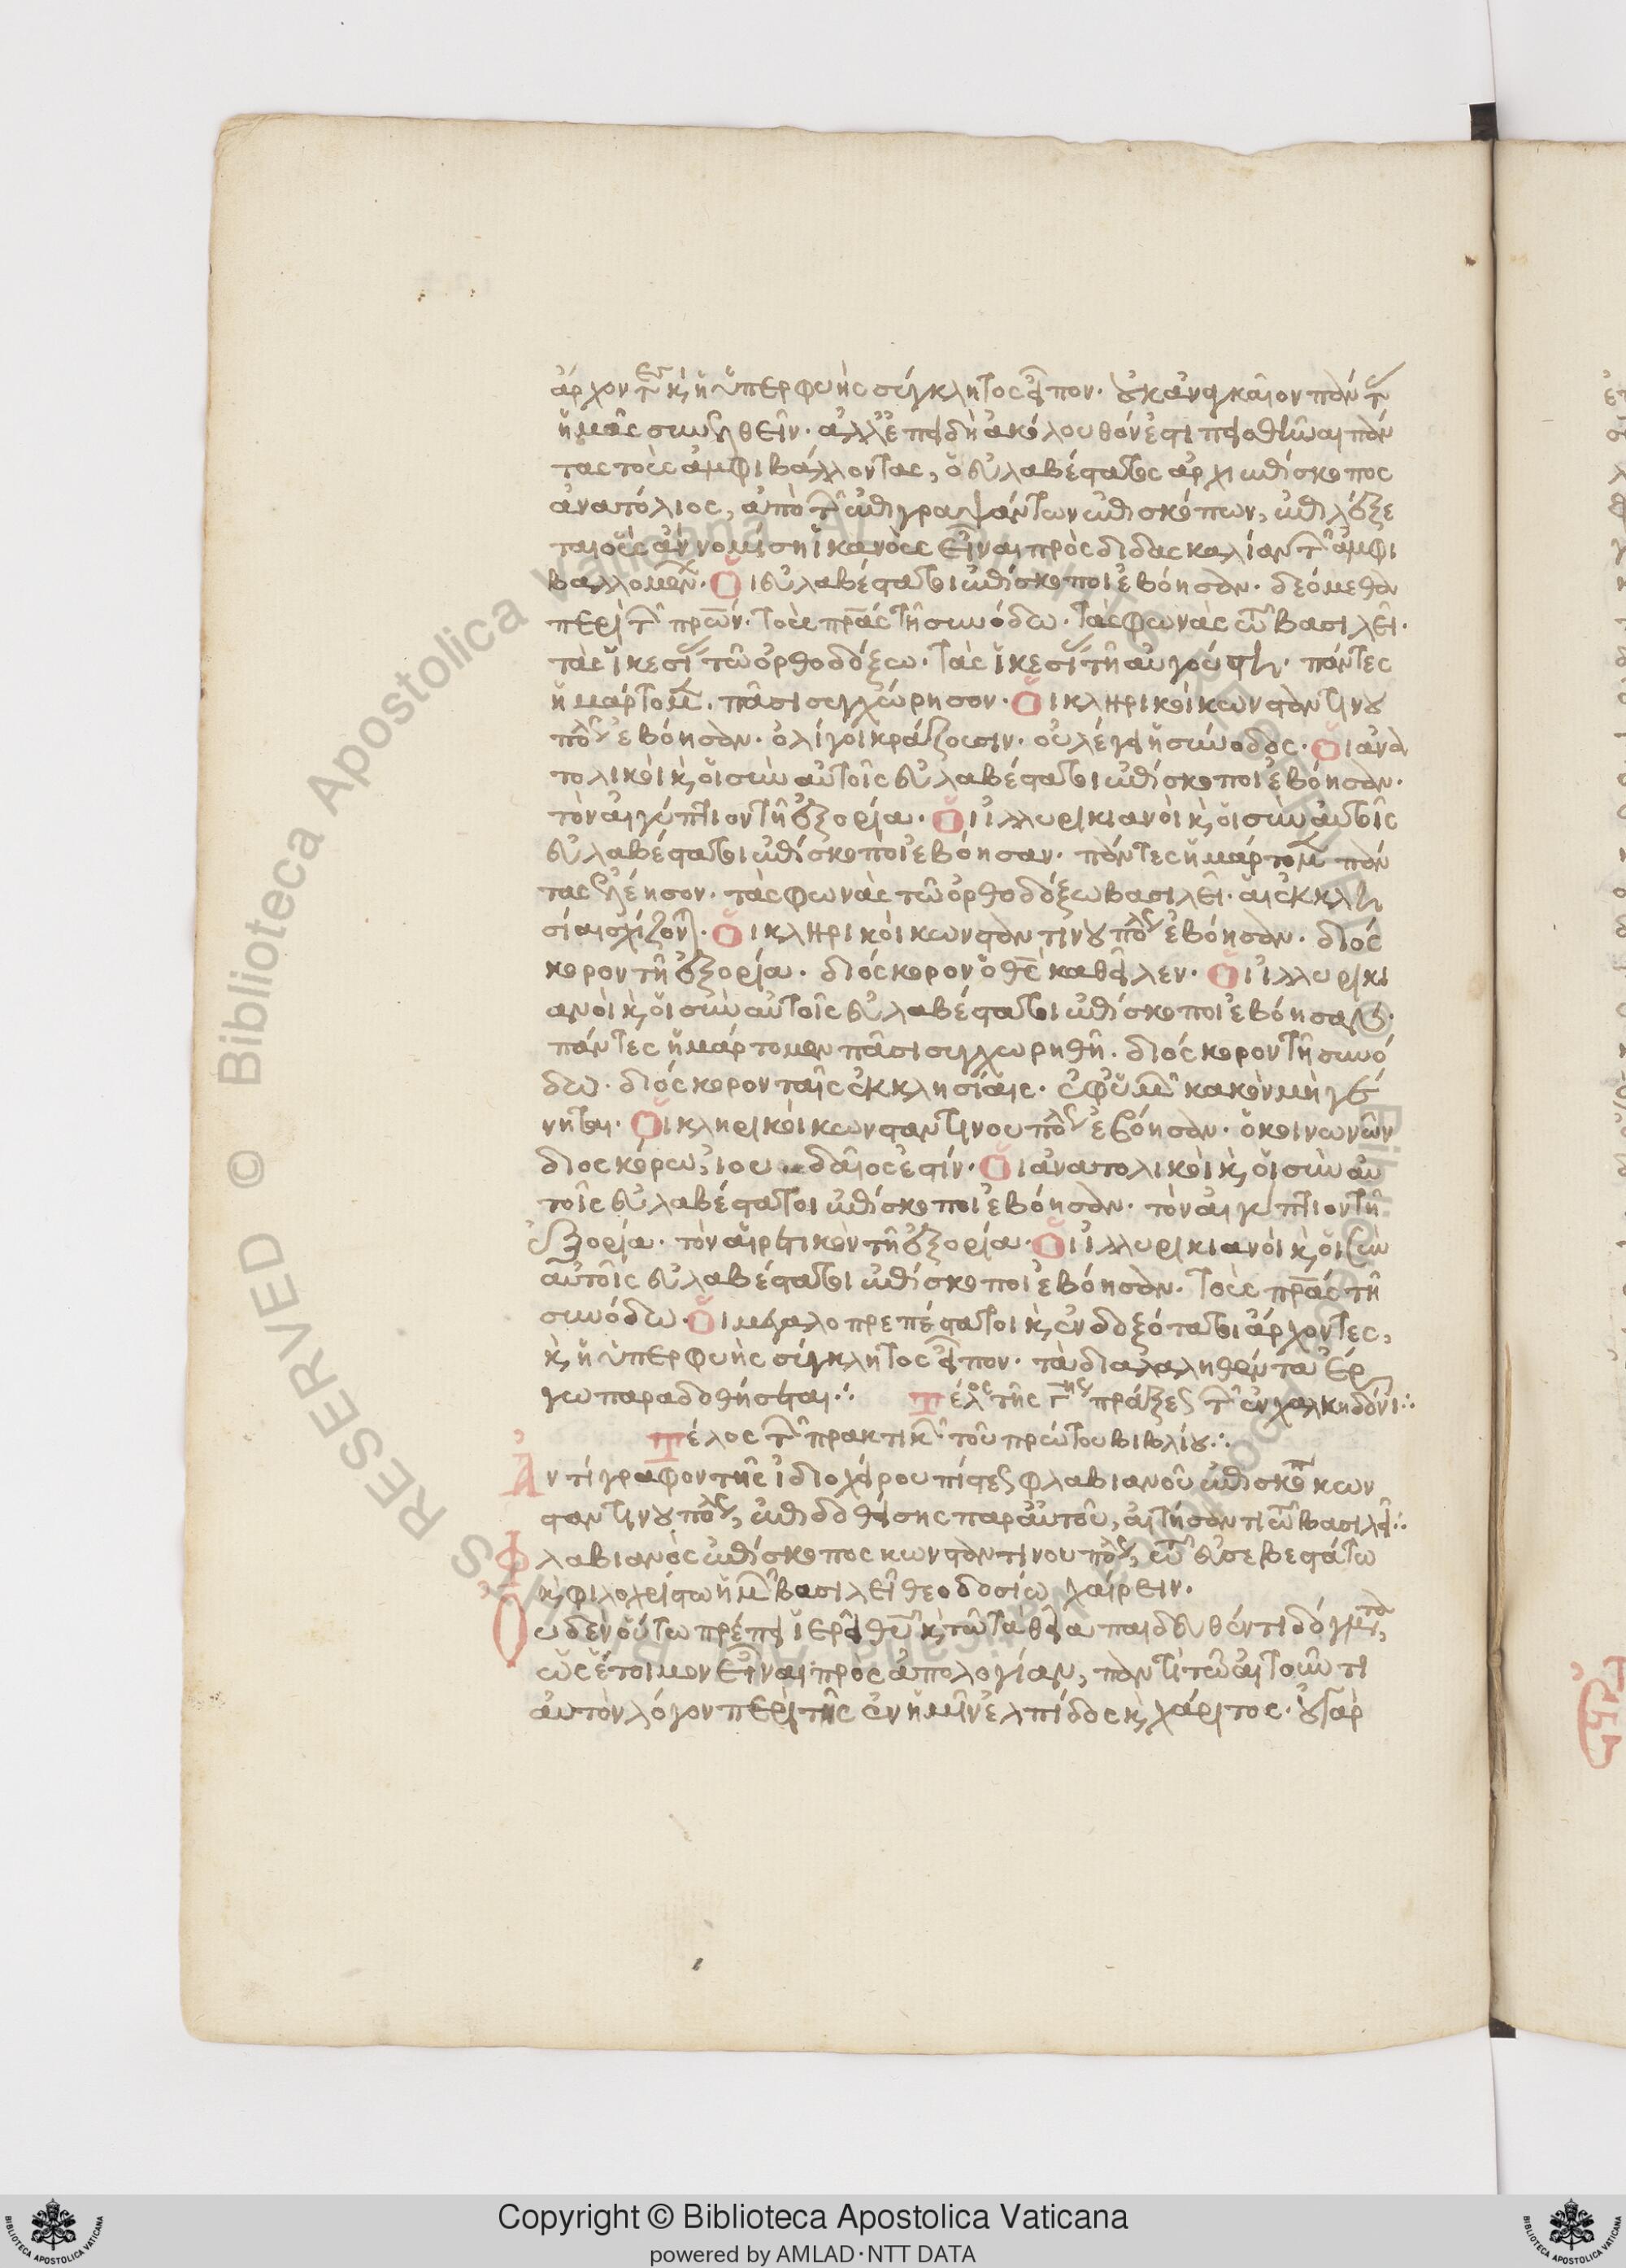 ἄρχοντες κ ἡ ὑπερφυὴς σύγκλητος εἶπον· οὐκ ἀναγκαῖον πάντας
ἡμᾶς συνελθεῖν· ἀλλ' ἐπειδὴ ἀκόλουθόν ἐστι πεισθῆναι πάν
τας τοὺς ἀμφιβάλλοντας, ὁ εὐλαβέστατος ἀρχιεπίσκοπος
ἀνατόλιος, ἀπὸ τῶν ἐπιγραψάντων ἐπισκόπων, ἐπιλέξε
ται οὓς ἂν νομίση ἱκανοὺς εἶναι πρὸς διδασκαλίαν τῶν ἀμφι
βαλλομένων. Οἱ εὐλαβέστατοι ἐπίσκοποι ἐβόησαν· δεόμεθα
περὶ τῶν πρων· τοὺς πρας τῆ συνόδω· τὰς φωνὰς τῶ βασιλεῖ·
τὰς ἱκεσίας τῶ ὀρθοδόξω· τὰς ἱκεσίας τῆ αὐγούστη· πάντες
ἡμάρτομεν· πᾶσι συγχώρησον· Οἱ κληρικοὶ κωνσταντίνου
πόλεως ἐβόησαν· ὀλίγοι κράζουσιν· οὐ λέγει ἡ σύνοδος· Οἱ ἀνα
τολικοὶ κ οἱ σὺν αὐτοῖς εὐλαβέστατοι ἐπίσκοποι ἐβόησαν·
τὸν αἰγύπτιον τῆ ἐξορία· Οἱ ἰλλυρικιανοὶ κ οἱ σὺν αὐτοῖς
εὐλαβέστατοι ἐπίσκοποι ἐβόησαν· πάντες ἡμάρτομεν πάν
τας ἐλέησον· τὰς φωνὰς τῶ ὀρθοδόξω βασιλεῖ· αἱ ἐκκλη
σίαι σχίζονται· Οἱ κληρικοὶ κωνσταντίνου πόλεως ἐβόησαν· διόσ
κορον τῆ ἐξορία· διόσκορον ὁ θεὸς καθεῖλεν· Οἱ ἰλλυρικι
ανοὶ κ οἱ σὺν αὐτοῖς εὐλαβέστατοι ἐπίσκοποι ἐβόησαν·
πάντες ἡμάρτομεν πᾶσι συγχωρηθῆ· διόσκορον τῆ συνό
δω· διόσκορον ταῖς ἐκκλησίαις· ἐφ' ὑμῶν κακὸν μὴ γέ
νηται· Οἱ κληρικοὶ κωνσταντίνου πόλεως ἐβόησαν· ὁ κοινωνῶν
διοσκόρω, ἰουδαῖος ἐστίν· Οἱ ἀνατολικοὶ κ οἱ σὺν αὐ
τοῖς εὐλαβέστατοι ἐπίσκοποι ἐβόησαν· τὸν αἰγύπτιον τῆ
ἐξορία· τὸν αἱρετικὸν τῆ ἐξορία· Οἱ ἰλλυρικιανοὶ κ οἱ σὺν
αὐτοῖς εὐλαβέστατοι ἐπίσκοποι ἐβόησαν· τοὺς πρας τῆ
συνόδω· Οἱ μεγαλοπρεπέστατοι κ ἐνδοξότατοι ἄρχοντες,
κ ἡ ὑπερφυὴς σύγκλητος εἶπον· τὰ διαλαληθέντα ἔρ
γω παραδοθήσεται∴ Τέλος τῆς γης πράξεως τῶν ἐν χαλκηδόνι∴
Τέλος τῶν πρακτικῶν τοῦ πρώτου βιβλίου∴
Ἀντίγραφον τῆς ἰδιοχείρου πίστεως φλαβιανοῦ ἐπισκόπου κων
σταντίνου πόλεως, ἐπιδοθείσης παρ' αὐτοῦ, αἰτήσαντι τῶ βασιλεῖ∴
Φλαβιανὸς ἐπίσκοπος κωνσταντίνου πόλεως, τῶ εὐσεβεστάτω
κ φιλοχρίστω ἡμῶν βασιλεῖ θεοδοσίω χαίρειν.
Οὐδὲν οὕτω πρέπει ἱερεῖ θεοῦ κ τῶ τὰ θεῖα παιδευθέντι δόγματα,
ὡς ἕτοιμον εἶναι πρὸς ἀπολογίαν, παντὶ τῶ αἰτοῦντι
αὐτὸν λόγον περὶ τῆς ἐν ἡμῖν ἐλπίδος κ χάριτος· οὐ γὰρ